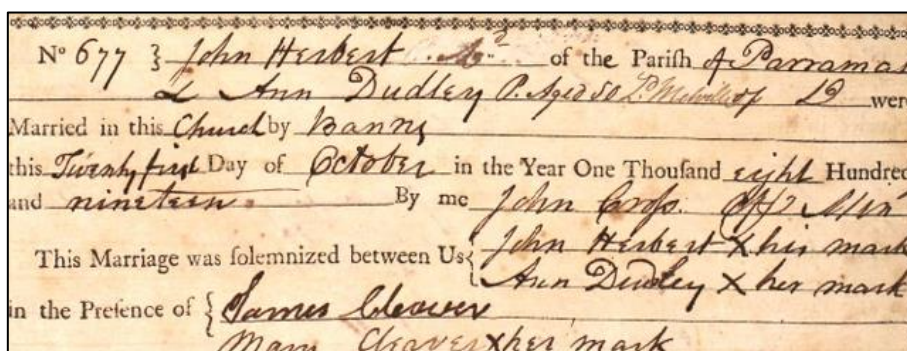 No 677 } John Herbert of the Parish of Parramat
& Ann Dudley P. Aged 50 Ld Melville of Do were
Married in this Church by Banns
this Twenty first Day of October in the Year One Thousand eight Hundred
and nineteen. By me John Cross. Offg Minr
This Marriage was solemnized between Us { John Herbert X his mark
Ann Dudley X her mark
in the Presence of { James Cleaver
Mary Cleaver X her mark